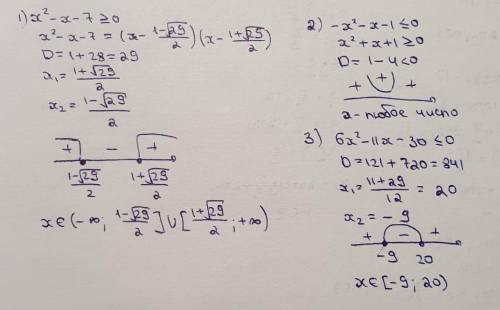 1) x² - x - 7 ≥ 0
x² - x - 7 = (x - (1-√29)/2) (x - (1+√29)/2)
D = 1 + 28 = 29
x₁ = (1+√29)/2
x₂ = (1-√29)/2
+ - +
(1-√29)/2 (1+√29)/2
x ∈ (-∞; (1-√29)/2] ∪ [(1+√29)/2; +∞)
2) -x² - x - 1 ≤ 0
x² + x + 1 ≥ 0
D = 1 - 4 < 0
+ + +
x - любое число
3) 6x² - 11x - 30 ≤ 0
D = 121 + 720 = 841
x₁ = (11+29)/12 = 20
x₂ = -9
+ - +
-9 20
x ∈ [-9; 20)